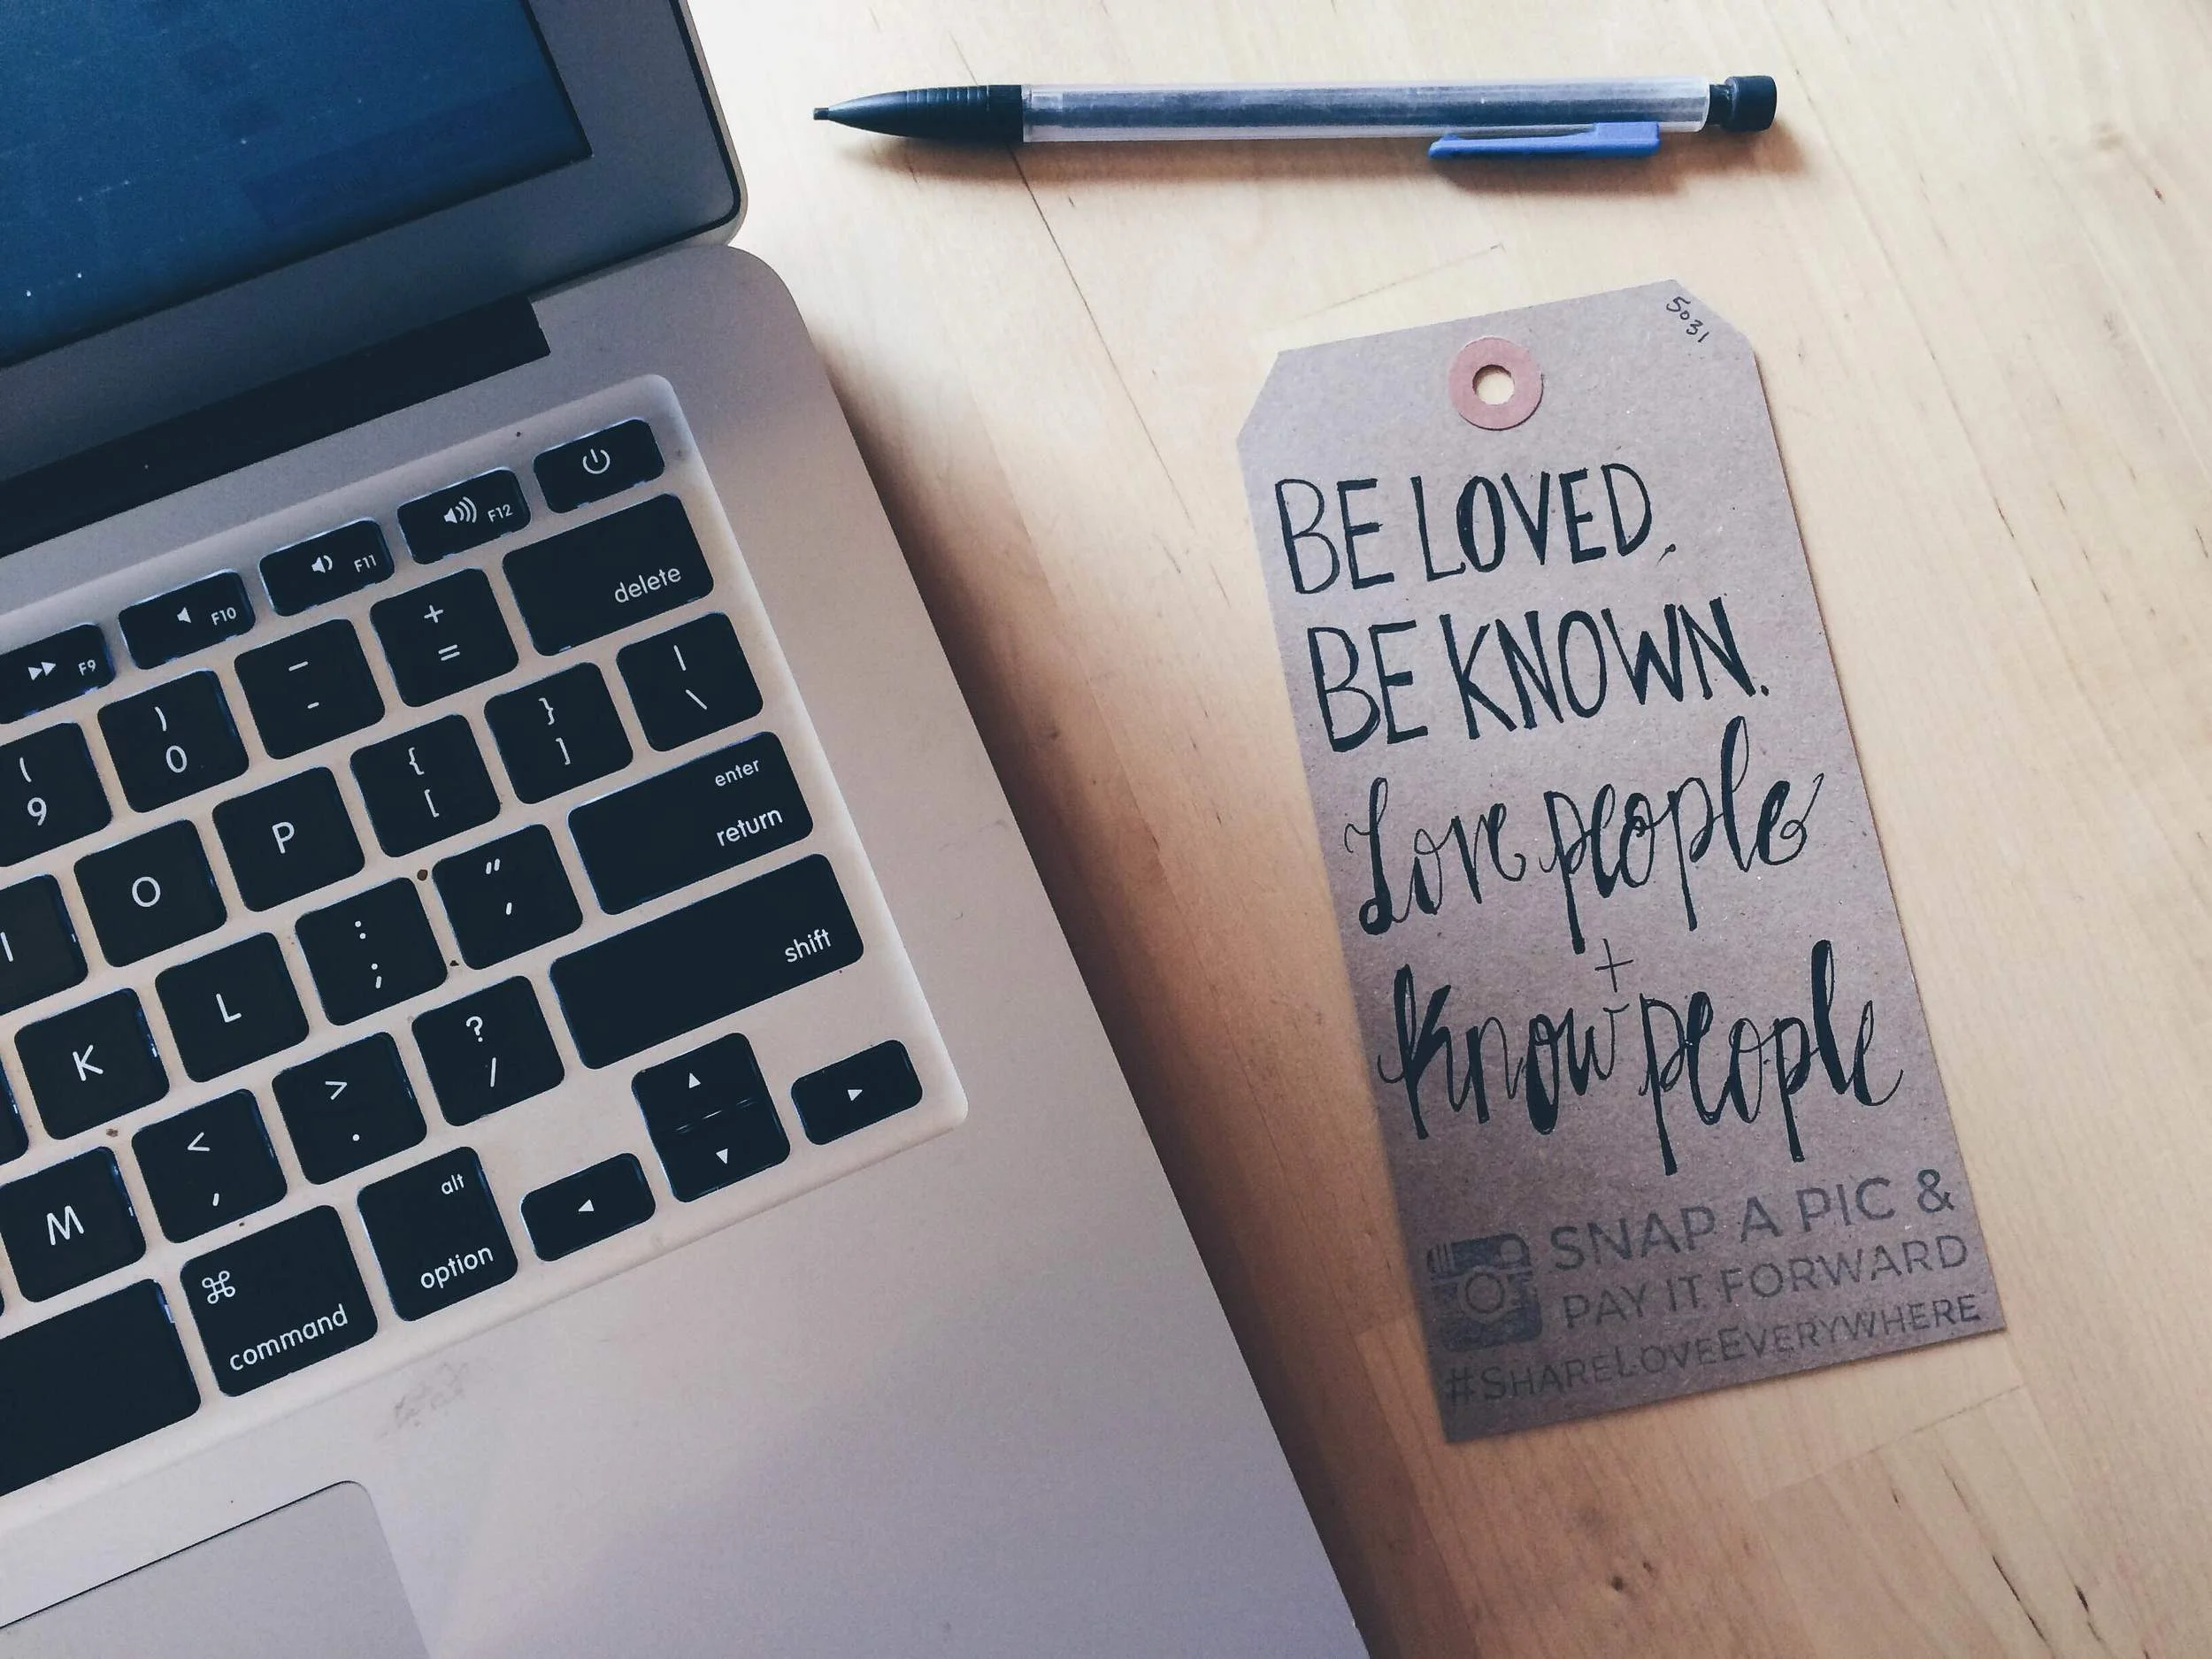 F9
F10
F11
F12
delete
( 9
) 0
_ -
+ =
I
O
P
{ [
} ]
| \
enter
return
K
L
: ;
" '
shift
M
< ,
> .
? /
⌘
command
alt
option
5031
BE LOVED.
BE KNOWN.
Love people
+
Know people
SNAP A PIC &
PAY IT FORWARD
#SHARELOVEEVERYWHERE